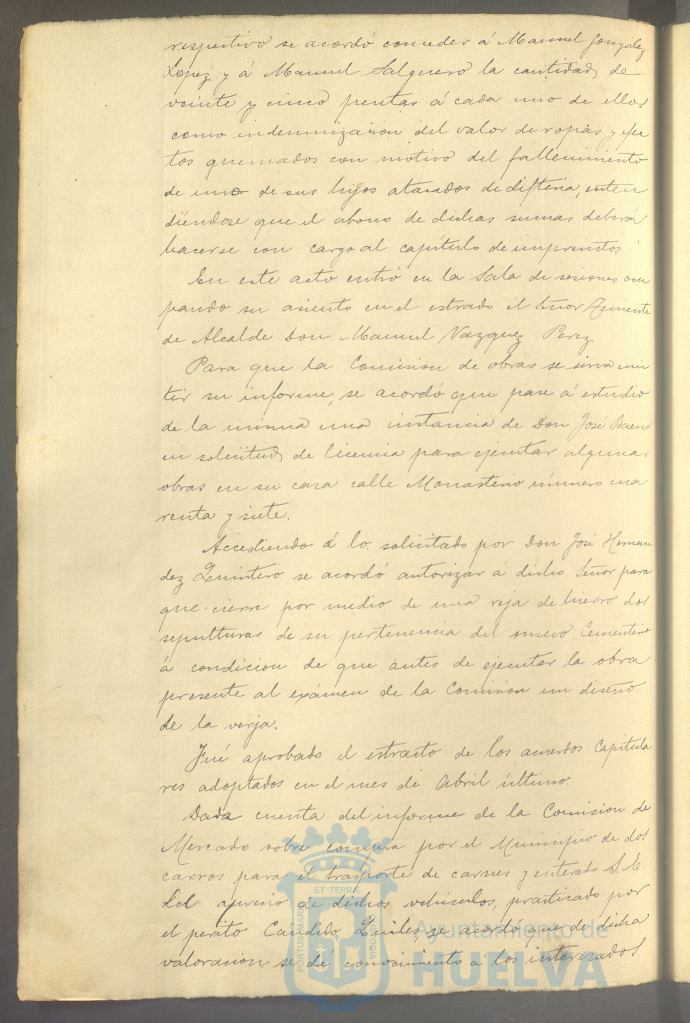 respectivo se acordó conceder á Manuel Gonzalez
Lopez y á Manuel Salguero la cantidad de
veinte y cinco pesetas á cada uno de ellos
como indemnizacion del valor de ropas y efec
tos quemados con motivo del fallecimiento
de uno de sus hijos atacados de difteria, enten
diéndose que el abono de dichas sumas deberá
hacerse con cargo al capítulo de imprevistos.
En este acto entró en la Sala de sesiones ocu
pando su asiento en el estrado el Señor Teniente
de Alcalde Don Manuel Vazquez Perez
Para que la Comision de obras se sirva emi
tir su informe, se acordó que pase á estudio
de la misma una instancia de Don José Baena
en solicitud de licencia para ejecutar algunas
obras en su casa calle Monasterio número cua
renta y siete.
Accediendo á lo solicitado por Don José Hernan
dez Quintero se acordó autorizar á dicho Señor para
que cierre por medio de una reja de hierro dos
sepulturas de su pertenencia del nuevo Cementerio
á condicion de que antes de ejecutar la obra
presente al exámen de la Comision un diseño
de la verja.
Fué aprobado el estracto de los acuerdos Capitula
res adoptados en el mes de Abril último.
Dada cuenta del informe de la Comision de
Mercado sobre compra por el Municipio de dos
carros para el trasporte de carnes y enterado S.E.
del aprecio de dichos vehículos, practicado por
el perito Candido Quiles, se acordó que de dicha
valoracion se dé conocimiento á los interesados
ET TERRÆ
PORTUS MARIS
CUSTODIA
Ayuntamiento de
HUELVA